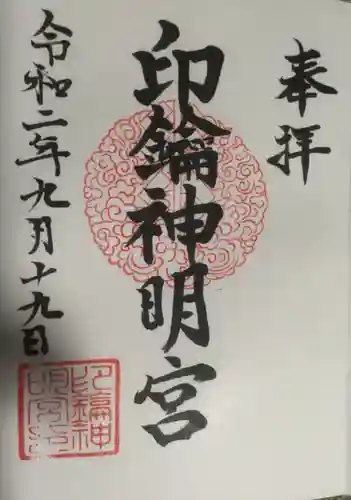 奉拝
印鑰神明宮
令和二年九月十九日
印鑰神
明宮之印